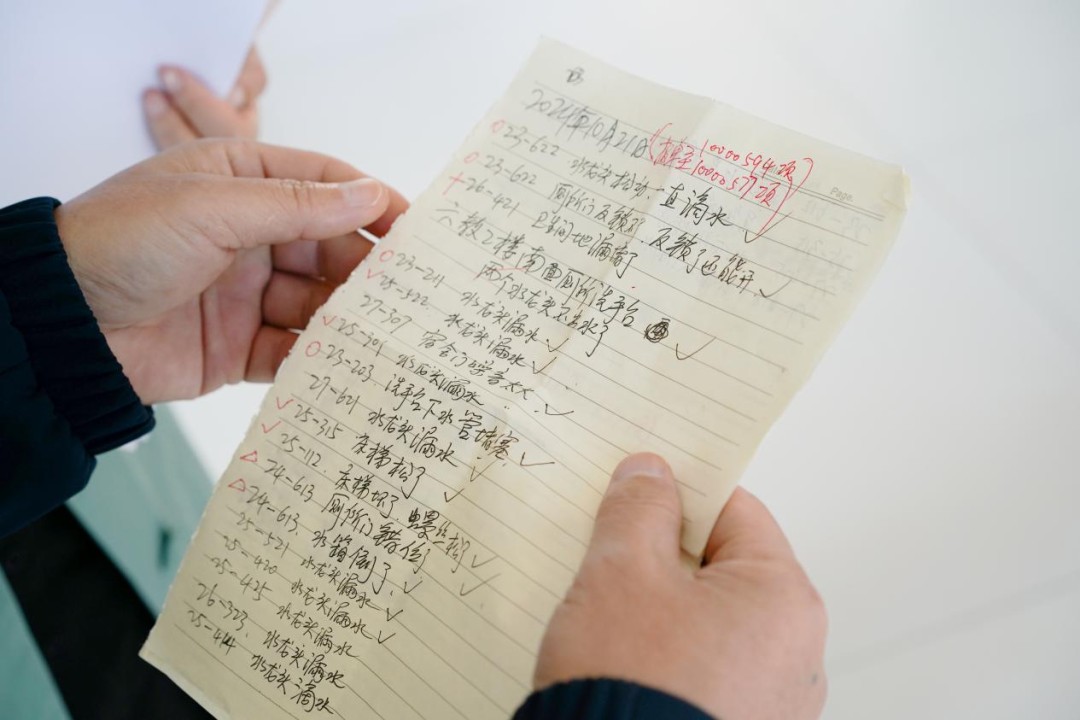 2024年10月21日
1000594项
1000577项
Page
23-622 水龙头松动一直滴水
23-622 厕所门反锁了.反锁了还能开
26-421 卫生间地漏堵了
六教2楼南面厕所洗手台
两个水龙头不出水了
23-211 水龙头漏水
25-522 水龙头漏水
27-307 宿舍门噪音太大
25-301 水龙头漏水
23-203 洗手台下水管堵塞
27-621 水龙头漏水
25-315 床梯松了
25-112 床梯坏了 螺丝松了
24-613 厕所门错位
24-613 水箱倒了
25-521 水龙头漏水
25-420 水龙头漏水
25-425 水龙头漏水
26-323 水龙头漏水
25-414 水龙头滴水